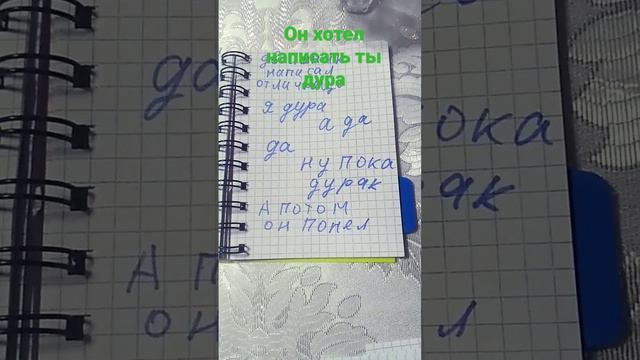 Он хотел
написать ты
дура
написал
я дура
а да
да
ну пока
дурак
А потом
он попел